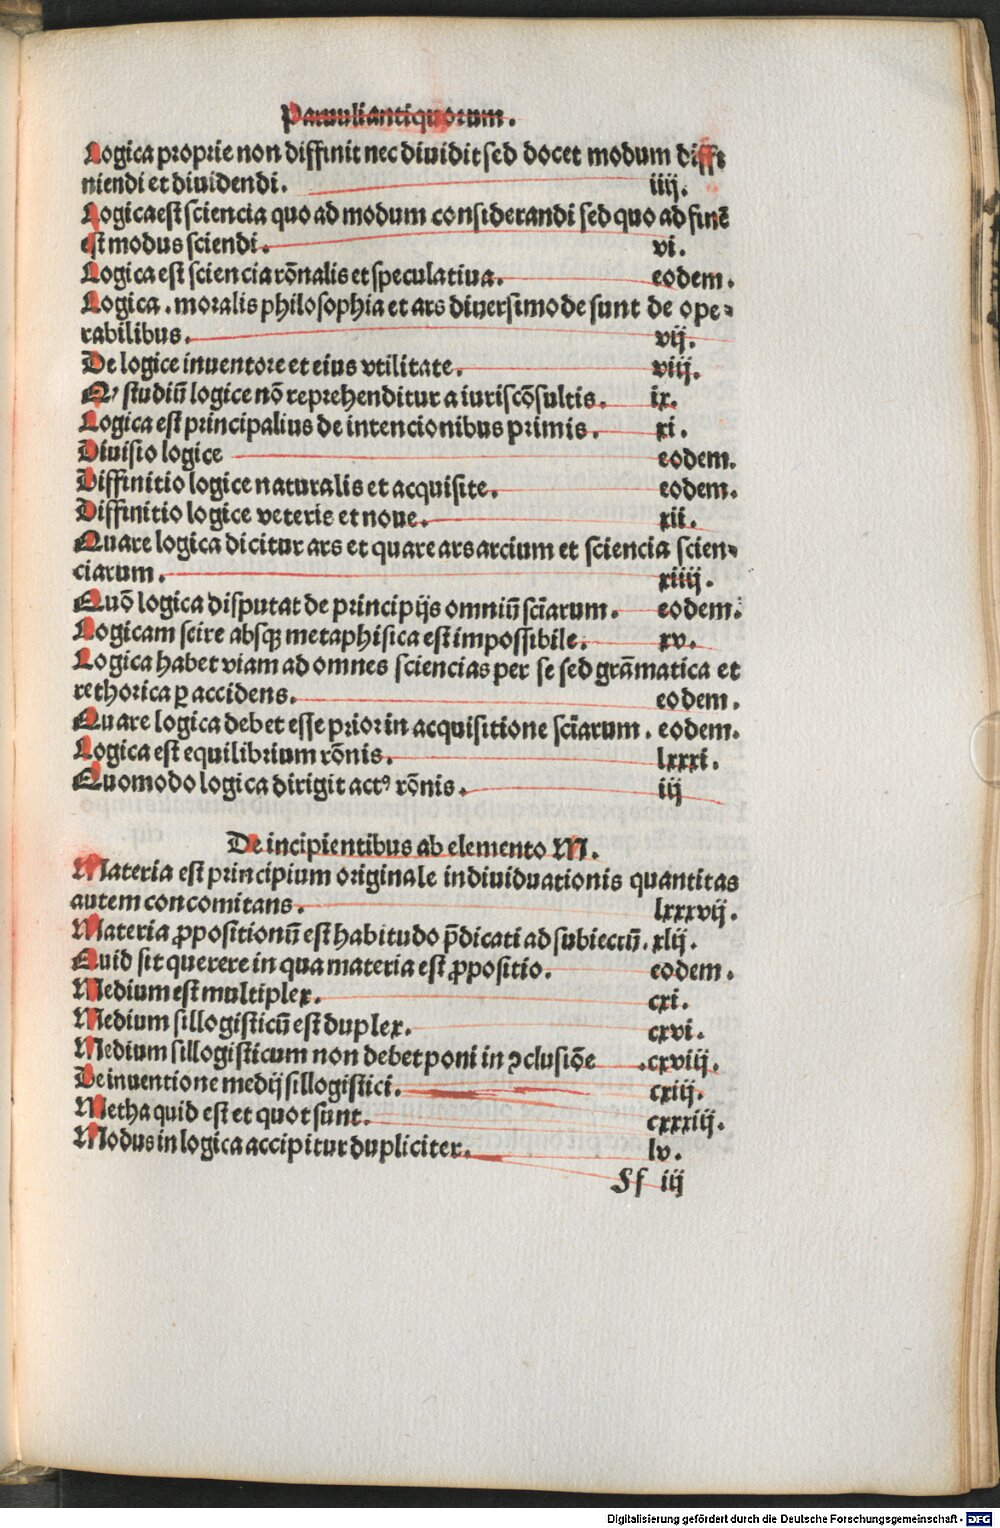 Paruuli antiquorum.
Logica proprie non diffinit nec diuidit sed docet modum diffi
niendi et diuidendi. iiij.
Logica est sciencia quo ad modum considerandi sed quo ad finē
est modus sciendi. vi.
Logica est sciencia rōnalis et speculatiua. eodem.
Logica . moralis philosophia et ars diuersimode sunt de ope⸗
rabilibus. vij.
De logice inuentore et eius vtilitate. viij.
Qꝫ studiū logice nō reprehenditur a iuriscōsultis. ix.
Logica est principalius de intencionibus primis. xi.
Diuisio logice eodem.
Diffinitio logice naturalis et acquisite. eodem.
Diffinitio logice veteris et noue. xii.
Quare logica dicitur ars et quare ars arcium et sciencia scien⸗
ciarum. xiiij.
Quō logica disputat de principijs omniū sciarum. eodem.
Logicam scire absqꝫ metaphisica est impossibile. xv.
Logica habet viam ad omnes sciencias per se sed grāmatica et
rethorica ꝑ accidens. eodem.
Quare logica debet esse prior in acquisitione sciarum. eodem.
Logica est equilibrium rōnis. lxxxi.
Quomodo logica dirigit actꝰ rōnis. iij
De incipientibus ab elemento M.
Materia est principium originale indiuiduationis quantitas
autem concomitans. lxxxvij.
Materia ꝓpositionū est habitudo p̄dicati ad subiectū. xlij.
Quid sit querere in qua materia est ꝓpositio. eodem.
Medium est multiplex. cxi.
Medium sillogisticū est duplex. cxvi.
Medium sillogisticum non debet poni in ↄclusiōe .cxviij.
De inuentione medij sillogistici. cxij.
Metha quid est et quot sunt. cxxxiij.
Modus in logica accipitur dupliciter. lv.
Ff iij
Digitalisierung gefördert durch die Deutsche Forschungsgemeinschaft - DFG